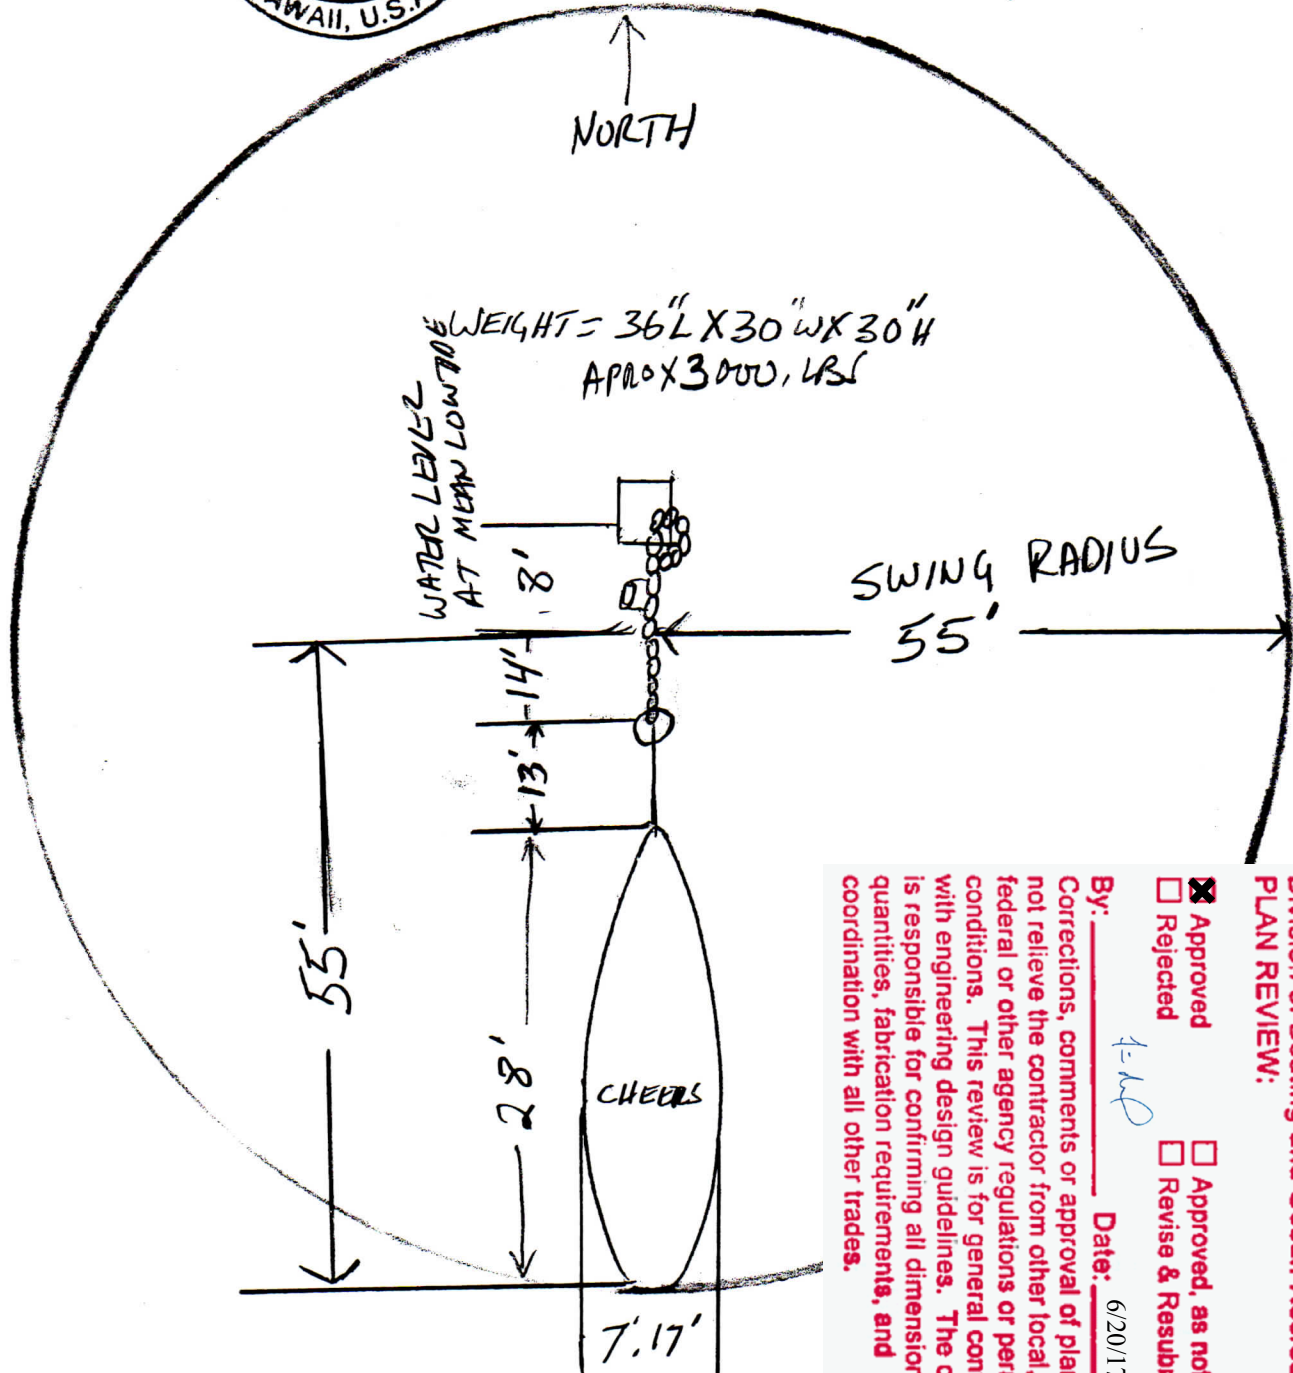 AWAII, U.S.
NORTH
WEIGHT = 36"L X 30"W X 30"H
APROX 3000, LBS
WATER LEVEL
AT MEAN LOWTIDE
8'
SWING RADIUS
55'
14'
13'
55'
28'
CHEERS
7.17'
PLAN REVIEW:
Approved
Approved, as not
Rejected
Revise & Resubm
By:
Date: 6/20/1
Corrections, comments or approval of plan
not relieve the contractor from other local,
federal or other agency regulations or per
conditions. This review is for general con
with engineering design guidelines. The c
is responsible for confirming all dimension
quantities, fabrication requirements, and
coordination with all other trades.